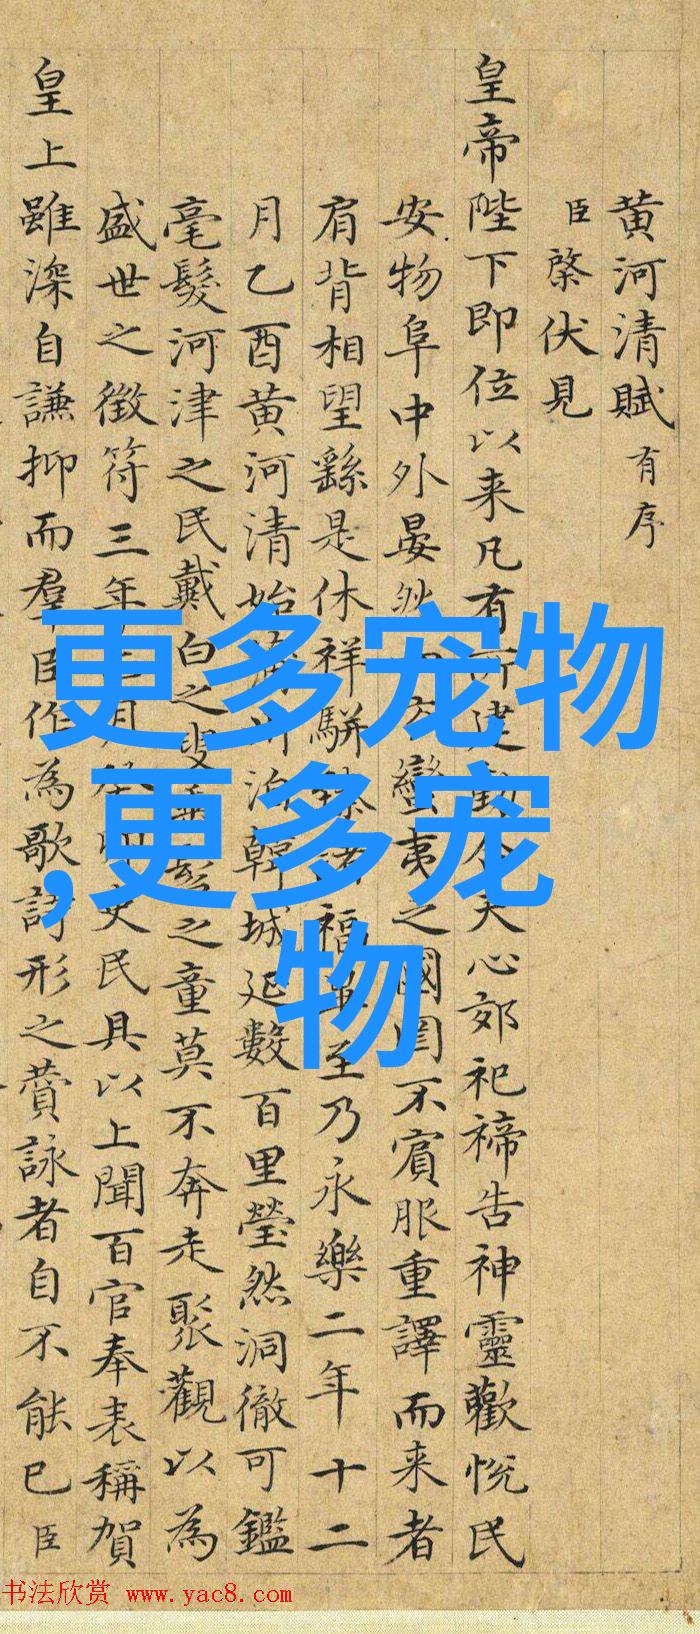 黄河清賦 有序
臣棨伏見
皇帝陛下即位以来凡有所建動合天心郊祀禘告神靈歡悅民
安物阜中外晏然蠻夷之國罔不賓服重譯而来者
肩背相望繇是休祥駢臻福畢至乃永樂二年十二
月乙酉黄河清始韓城延數百里瑩然洞徹可鑑
毫髮河津之民戴白之叟垂髫之童莫不奔走聚觀以為
盛世之徴符三年月吏民具以上聞百官奉表稱賀
皇上雖深自謙抑而羣臣作為歌詩形之賛詠者自不能已臣
更多宠物
,更多宠
物
书法欣赏 www.yac8.com